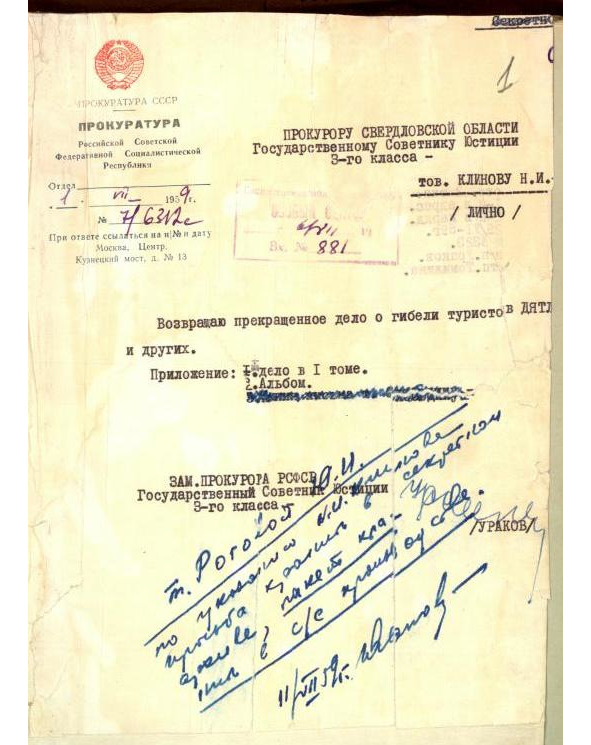 Секретно
1
ПРОКУРАТУРА СССР
ПРОКУРАТУРА
Российской Советской
Федеративной Социалистической
Республики
Отдел
1 VII 1959г.
№ 7/6312с
При ответе ссылаться на н/№ и дату
Москва, Центр.
Кузнецкий мост, д. № 13
ПРОКУРОРУ СВЕРДЛОВСКОЙ ОБЛАСТИ
Государственному Советнику Юстиции
3-го класса -
тов. КЛИНОВУ Н.И.
/ ЛИЧНО /
Вх. № 881
Возвращаю прекращенное дело о гибели туристов ДЯТЛ
и других.
Приложение: 1.дело в I томе.
2.Альбом.
ЗАМ.ПРОКУРОРА РСФСР
Государственный Советник Юстиции
3-го класса -
/УРАКОВ/
т. Роговой
по указанию Н.И. Клинова
просьба хранить в секретном
архиве, пакет
в с/с производстве.
11/VII 59г. Иванов